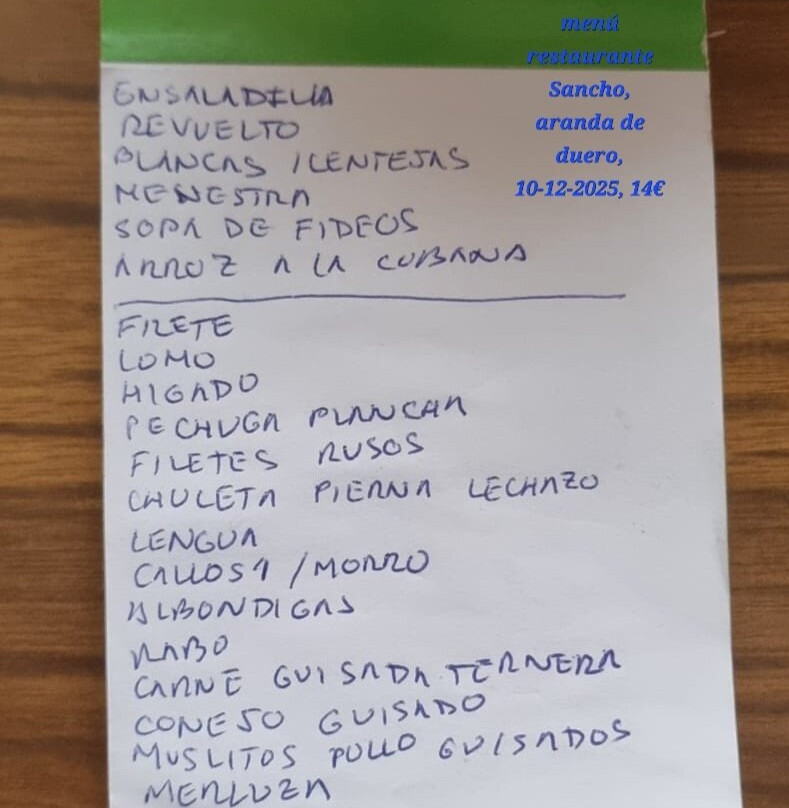 menú
restaurante
Sancho,
aranda de
duero,
10-12-2025, 14€
ENSALADILLA
REVUELTO
BLANCAS / LENTEJAS
MENESTRA
SOPA DE FIDEOS
ARROZ A LA CUBANA
FILETE
LOMO
HIGADO
PECHUGA PLANCHA
FILETES RUSOS
CHULETA PIERNA LECHAZO
LENGUA
CALLOS 1 / MORRO
ALBONDIGAS
RABO
CARNE GUISADA TERNERA
CONEJO GUISADO
MUSLITOS POLLO GUISADOS
MERLUZA